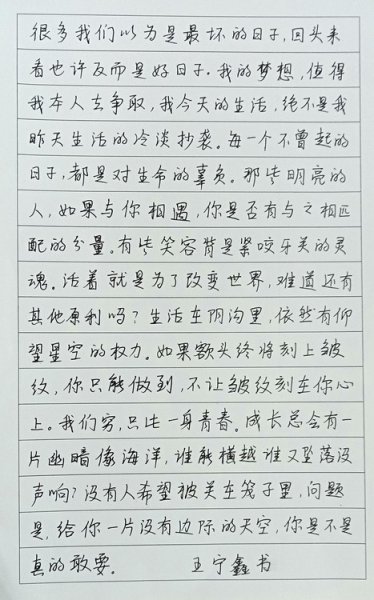 很多我们以为是最坏的日子,回头来
看也许反而是好日子.我的梦想,值得
我本人去争取,我今天的生活,绝不是我
昨天生活的冷淡抄袭。每一个不曾起的
日子,都是对生命的辜负。那些明亮的
人,如果与你相遇,你是否有与之相匹
配的分量。有些笑容背是紧咬牙关的灵
魂。活着就是为了改变世界,难道还有
其他原利吗?生活在阴沟里,依然有仰
望星空的权力。如果额头终将刻上皱
纹,你只能做到,不让皱纹刻在你心
上。我们穷,只比一身青春。成长总会有一
片幽暗像海洋,谁能横越谁又坠落没
声响?没有人希望被关在笼子里,问题
是,给你一片没有边际的天空,你是不是
真的敢要。 王宁鑫书